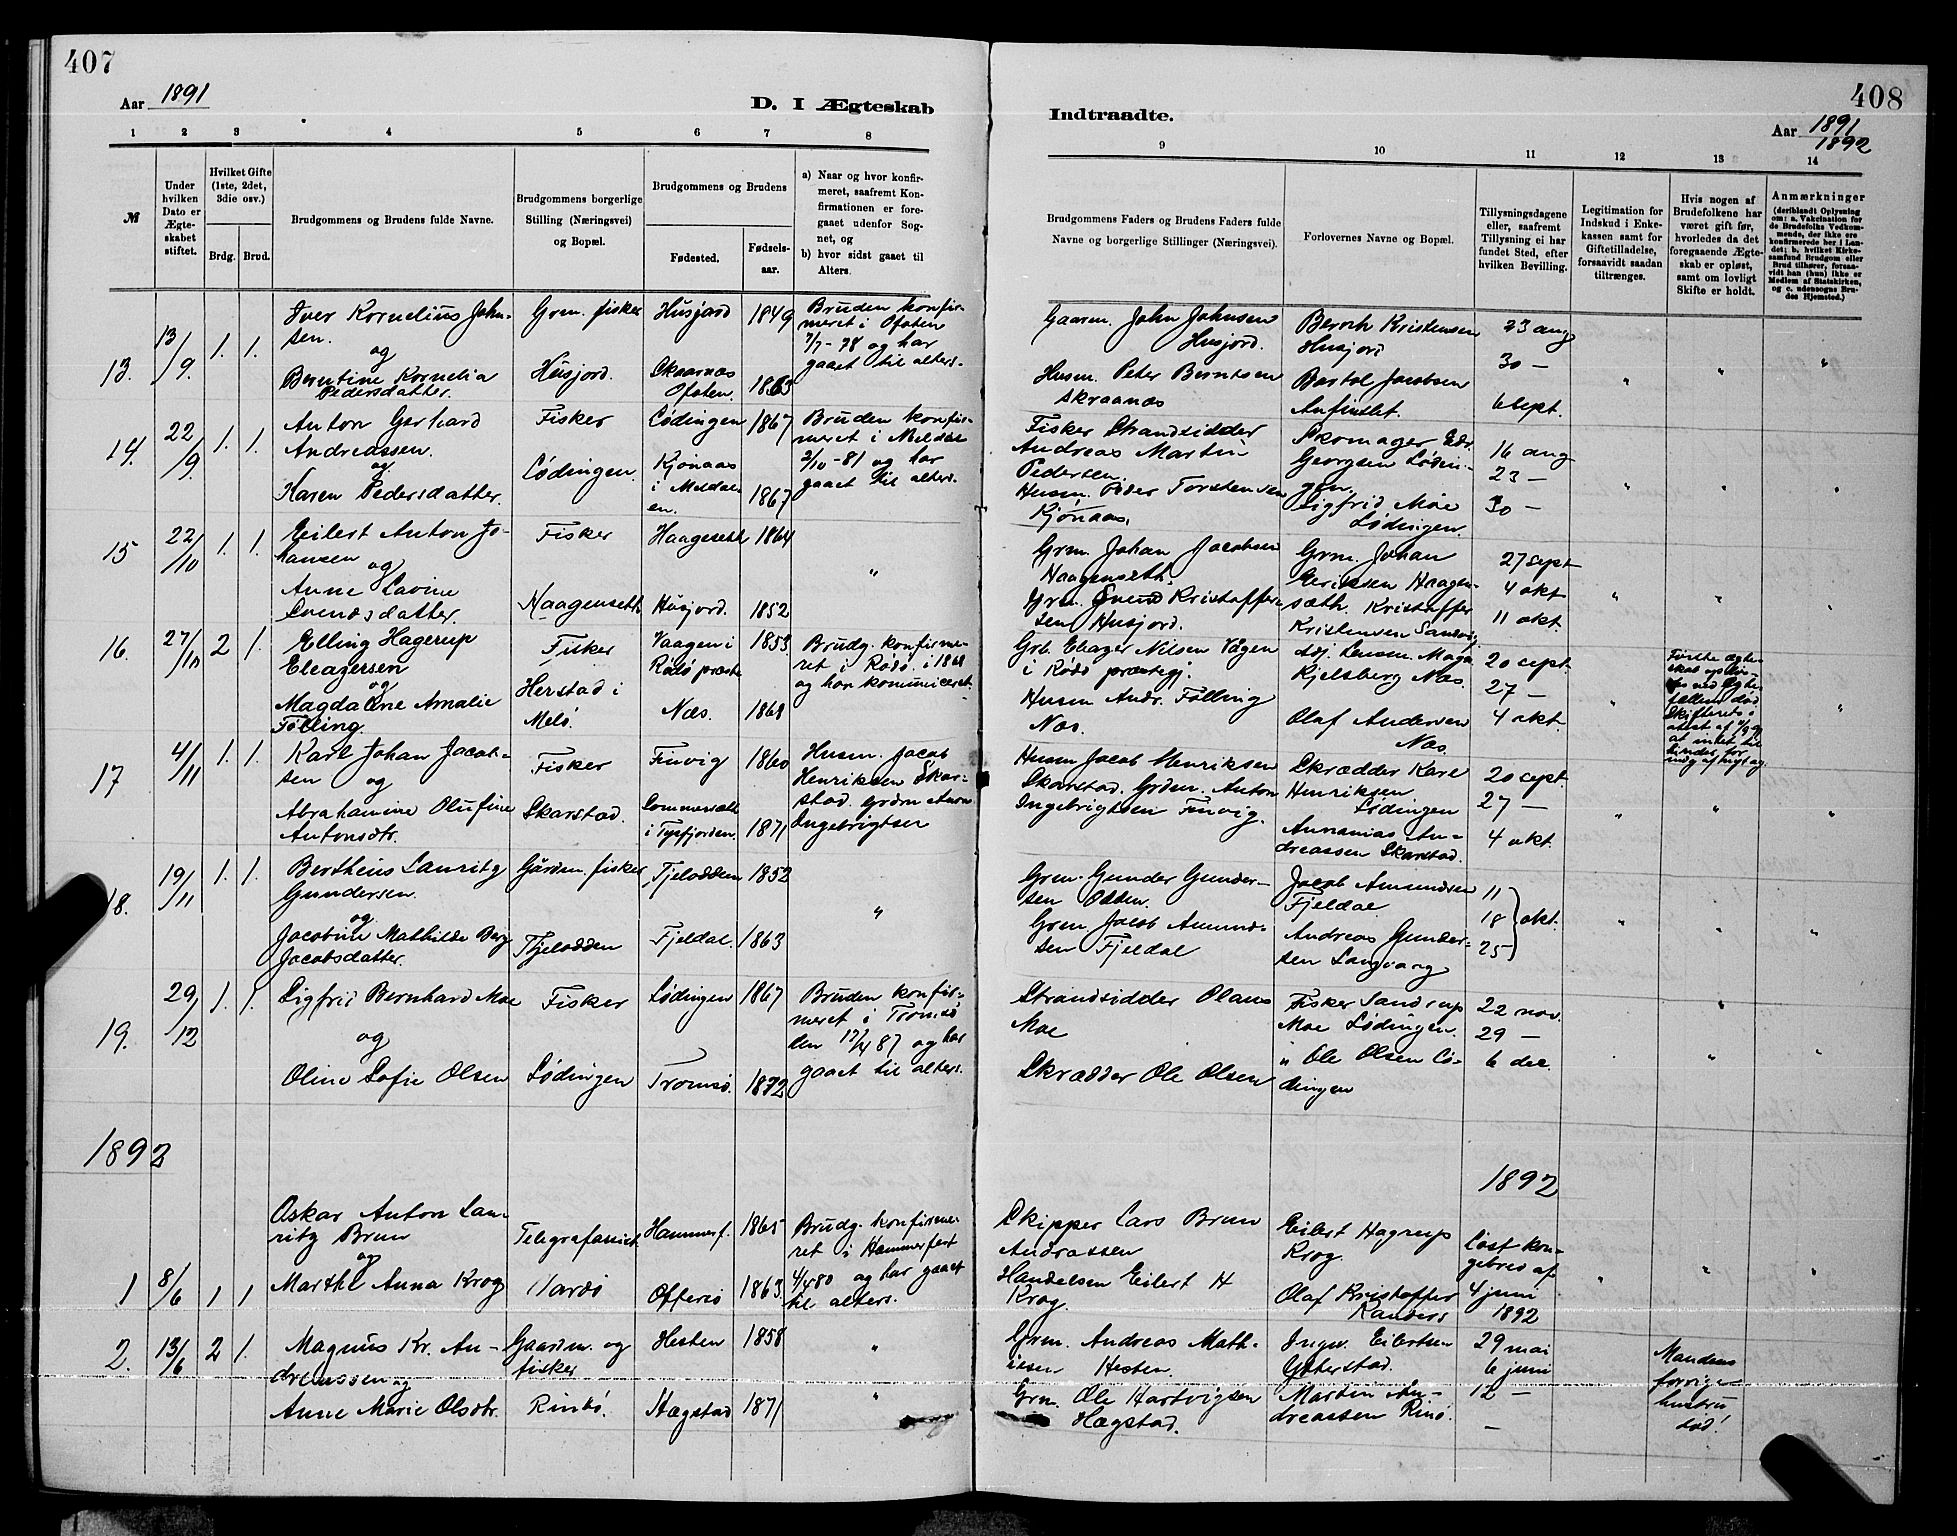 407
Aar 1891
D. I Ægteskab
1 2 3 4 5 6 7 8
№
Under hvilken Dato er Ægteskabet stiftet.
Hvilket Gifte (1ste, 2det, 3die osv.)
Brdg. Brud.
Brudgommens og Brudens fulde Navne.
Brudgommens borgerlige Stilling (Næringsvei) og Bopæl.
Brudgommens og Brudens
Fødested. Fødselsaar.
a) Naar og hvor konfirmeret, saafremt Konfirmationen er foregaaet udenfor Sognet, og
b) hvor sidst gaaet til Alters.
13. 13/9. 1. 1.
Iver Kornelius Johnsen.
og
Berntine Kornelia Pedersdatter.
Grm. fisker
Husjord.
Husjord 1849
Skaarnæs Ofoten. 1863
Bruden konfirmeret i Ofoten 7/7-78 og har gaaet til alters.
14. 22/9. 1. 1.
Anton Gerhard Andreassen.
og
Karen Pedersdatter.
Fisker
Lødingen.
Lødingen 1867
Kjønaas i Meldalen. 1867
Bruden konfirmeret i Meldal 2/10-81 og har gaaet til alters.
15 22/10 1. 1.
Eilert Anton Johansen og
Anne Lavine Svendsdatter.
Fisker
Haagenseth
Haagenseth 1864
Husjord. 1852
"
16. 27/10 2 1.
Elling Hagerup Eleagersen
og
Magdalene Amalie Følling.
Fisker
Herstad i Melø.
Vaagen i Rødø præste 1853
Næs. 1868
Brudg. konfirmeret i Rødø i 1868 og har kommuniceret.
17 4/11 1. 1.
Karl Johan Jacobsen og
Abrahamine Olufine Antonsdtr.
Fisker
Skarstad.
Finvig 1860
Sommersæth i Tysfjorden. 1871
Husm. Jacob Henriksen Skarstad. Grdm Anton Ingebrigtsen
18. 19/11 1. 1.
Bertheus Lauritz Gundersen.
og
Jacobine Mathilde Berg Jacobsdatter.
Gårdm. fisker
Fjelodden
Fjelodden 1852
Fjeldal. 1863
"
19. 29/12 1. 1.
Sigfrid Bernhard Moe
og
Oline Sofie Olsen
Fisker
Lødingen
Lødingen 1867
Tromsø. 1872
Bruden konfirmeret i Tromsø den 17/4 87 og har gaaet til alters.
1892
1 8/6 1 1
Oskar Anton Lauritz Brun
og
Marthe Anna Krog
Telegrafassist.
Vardø
Hammerf. 1865
Offersø 1863
Brudg. konfirmeret i Hammerfest 4/4 80 og har gaaet til alters.
2. 13/6 2 1.
Magnus Kr. Andreassen og
Anne Marie Olsdtr.
Gaardm. og fisker
Rinø.
Hesten 1858
Hægstad 1871
"
"
408
Indtraadte.
Aar 1891
1892
9 10 11 12 13 14
Brudgommens Faders og Brudens Faders fulde Navne og borgerlige Stillinger (Næringsvei).
Forlovernes Navne og Bopæl.
Tillysningsdagene eller, saafremt Tillysning ei har fundet Sted, efter hvilken Bevilling.
Legitimation for Indskud i Enkekassen samt for Giftetilladelse, forsaavidt saadan tiltrænges.
Hvis nogen af Brudefolkene har været gift før, hvorledes da det foregaaende Ægteskab er opløst, samt om lovligt Skifte er holdt.
Anmærkninger
(deriblandt Oplysning om: a. Vakcination for de Brudefolks Vedkommende, der ikke ere konfirmerede her i Landet; b. hvilket Kirkesamfund Brudgom eller Brud tilhører, forsaavidt han (hun) ikke er Medlem af Statskirken, og c. udensogns Brudes Hjemsted.)
Gaarm. John Johnsen Husjord.
Husm. Peter Berntsen Skraanæs
Kristensen Husjord
Bartol Jacobsen
23 aug
30 —
6 sept.
Fisker Strandsidder Andreas Martin Pedersen
Husm. Peder Torstensen Kjønaas.
Skomager Georgsen Lødingen.
Sigfrid Moe Lødingen.
16 aug
23 —
30 —
Grm. Johan Jacobsen Haagenseth.
Grm. Svend Kristoffersen Husjord.
Grm. Johan Eriksen Haagensæth. Kristoffer Kristensen
27 sept
4 okt
11 okt.
Grb. Eleager Nilsen Vågen i Rødø præstegj.
Husm Andr. Følling Næs.
Kjelsberg Næs.
Olaf Andersen Næs.
20 sept.
27 —
4 okt.
Første ægteskab opløst ved død
Husm Jacob Henriksen Skarstad. Grdm. Anton Ingebrigtsen Finvig.
Skrædder Karl Henriksen Lødingen
Annanias Andreassen Skarstad.
20 sept.
27 —
4 okt.
Grm. Gunder Gundersen Odden.
Grm Jacob Amundsen Fjeldal
Jacob Amundsen Fjeldal.
Andreas Gundersen Langvang
11
18 okt.
25
Strandsidder Olaus Moe
Skrædder Ole Olsen
Fisker Sandrup Moe Lødingen.
" Ole Olsen Lødingen
22 nov.
29 —
6 dec.
1892
Skipper Lars Brun Andrassen
Handelsm Eilert H Krog.
Eilert Hagrup Krog.
Olaf Kristoffer Randers
Løst kongebrev af 4 juni 1892
Grm. Andreas Mathisen Hesten.
Grm. Ole Hartvigsen Hægstad.
Ingv. Eilertsen Ytterstad.
Martin Andreassen Rinø.
29 mai
6 juni
12 —
—
Mandens forrige hustru død!